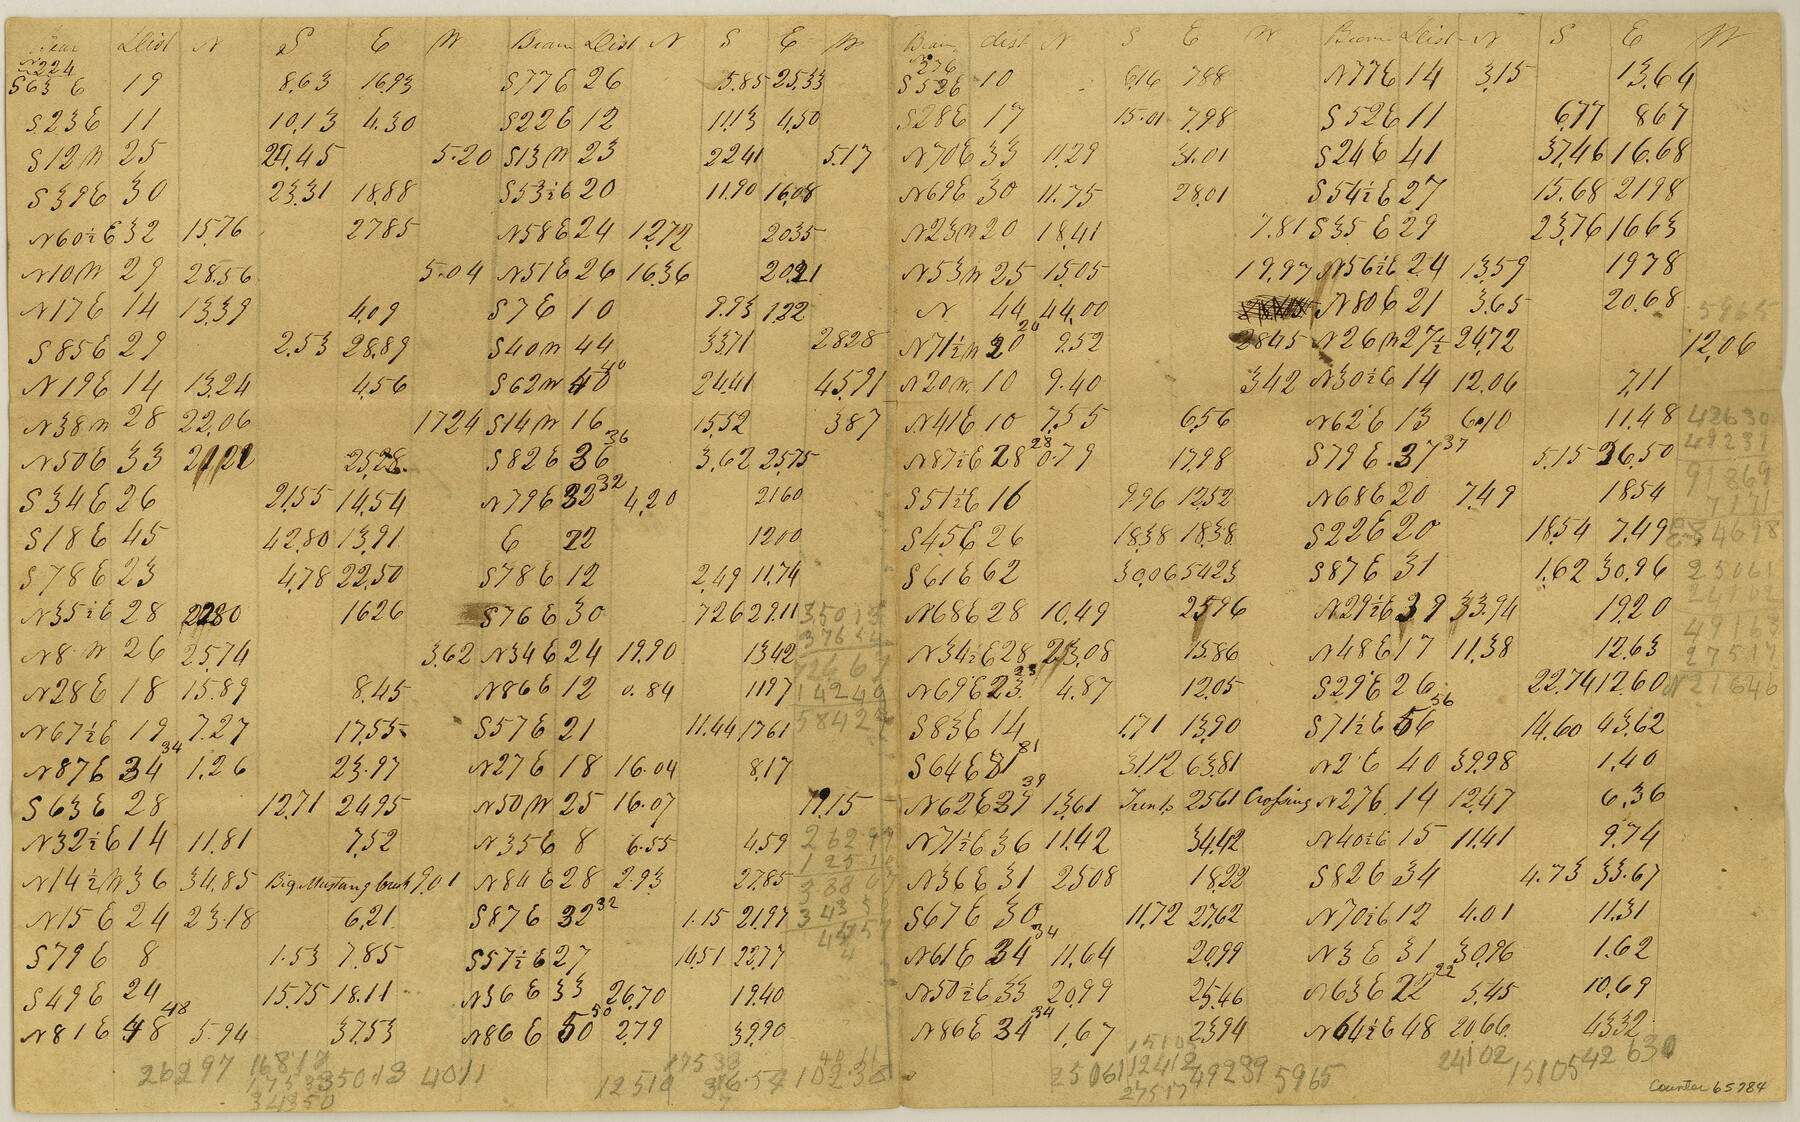 Bear Dist N S E W Bearn Dist N S E W Bearn dist N S E W Bearn Dist N S E W
N224 N576
S63 E 19 8.63 16.93 S77E 26 5.85 25.33 S52E 10 6.16 788 N77E 14 3.15 13.64
S.23E 11 10.13 4.30 S22E 12 11.13 4.50 S28E 17 15.01 7.98 S52E 11 6.77 867
S12W 25 24.45 5.20 S13W 23 2241 5.17 N70E 33 11.29 31.01 S24E 41 37.46 16.68
S39E 30 23.31 18.88 S53½E 20 11.90 16.08 N69E 30 11.75 28.01 S54½E 27 15.68 2198
N60½E 32 15.76 2785 N58E 24 12.72 2035 N23W 20 18.41 7.81 S35E 29 23.76 1663
N10W 29 28.56 5.04 N51E 26 16.36 20.21 N53W 25 15.05 19.97 N56½E 24 13.59 1978
N17E 14 13.39 4.09 S7E 10 9.93 1.22 N 44 44.00 N80E 21 3.65 20.68 5965
S85E 29 2.53 28.89 S40W 44 33.71 2828 N71½W 30 9.52 2845 N26W 27½ 24.72 12.06
N19E 14 13.24 4.56 S62W 40 24.41 45.91 N20W 10 9.40 342 N30½E 14 12.06 7.11
N38W 28 22.06 1724 S14W 16 15.52 387 N41E 10 7.55 6.56 N62E 13 6.10 11.48 42630
N50E 33 21.21 25.28 S82E 26 36 3.62 25.75 N87½E 28 28 0.79 17.98 S79E 37 37 5.15 36.50 49239
S34E 26 21.55 14.54 N79E 32 32 4.20 2160 S51½E 16 9.96 12.52 N68E 20 7.49 1854 91869
7171
S18E 45 42.80 13.91 E 22 1200 S45E 26 18.38 18.38 S22E 20 18.54 7.49 E 84698
S78E 23 4.78 22.50 S78E 12 2.49 11.74 S61E 62 30.06 5423 S87E 31 1.62 30.96 25061
24102
N35½E 28 2280 1626 S76E 30 726 29.11 35013 N68E 28 10.49 2596 N29½E 39 33.94 19.20
37654 49163
N8W 26 25.74 3.62 N34E 24 19.90 1342 72667 N34½E 28 23.08 15.86 N48E 17 11.38 12.63 27517
N28E 18 15.89 8.45 N86E 12 0.84 1197 14249 N69E 23 4.87 12.05 S29E 26 22.74 12.60 N21646
N67½E 19 7.27 17.55 S57E 21 11.44 1761 S83E 14 1.71 13.90 S71½E 56 56 14.60 43.62
N87E 34 34 1.26 23.97 N27E 18 16.04 8.17 S64E 81 81 31.12 63.81 N2E 40 39.98 1.40
S63E 28 12.71 2495 N50W 25 16.07 19.15 N62E 39 13.61 2561 Crossing N27E 14 12.47 6.36
N32½E 14 11.81 7.52 N35E 8 6.55 4.59 N71½E 36 11.42 34.42 N40½E 15 11.41 9.74
26297
N14½W 36 34.85 Big Mustang Creek 9.01 N84E 28 2.93 27.85 N36E 31 2508 18.22 S82E 34 4.73 33.67
N15E 24 23.18 6.21 S87E 32 32 1.15 21.97 S67E 30 11.72 27.62 N70½E 12 4.01 11.31
S79E 8 1.53 7.85 S57½E 27 14.51 22.77 N61E 24 34 11.64 20.99 N3E 31 30.96 1.62
S49E 24 15.75 18.11 N36E 33 26.70 19.40 N50½E 33 20.99 25.46 N63E 22 22 5.45 10.69
N81E 48 48 5.94 37.53 N86E 50 50 2.79 39.90 N86E 34 34 1.67 23.94 N64½E 48 20.66 43.32
26297 16817 35013 4011 12510 17533 10238 25061 12412 49239 5965 24102 15105 42630
17533 15105
34350 27517
Counter 65784